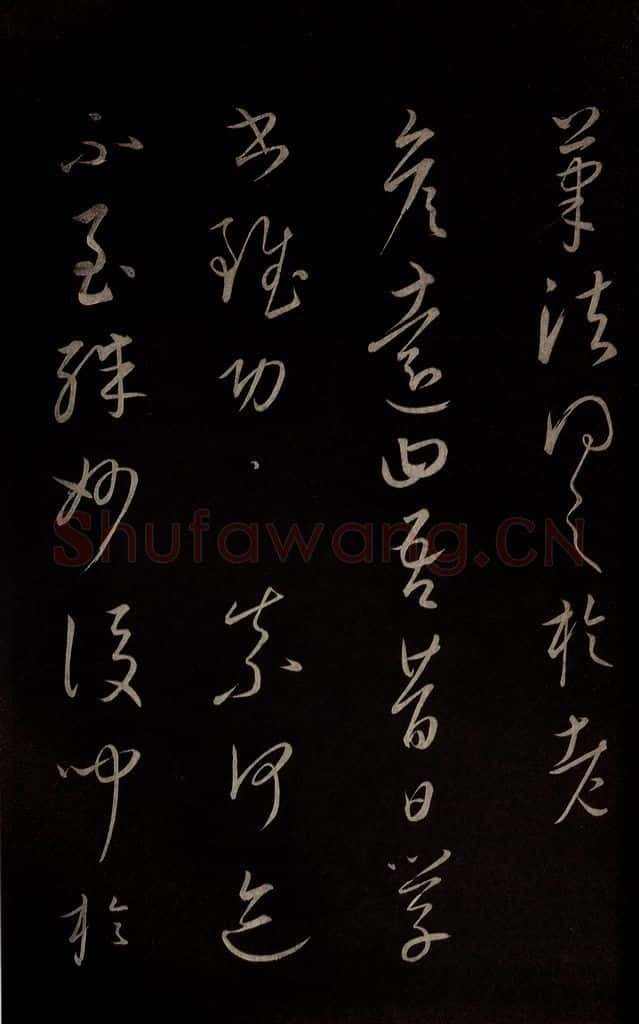 筆法得之於老
彥遠曰吾昔日學
書雖功、奈何迹
不至殊妙後聞於
Shufawang.CN